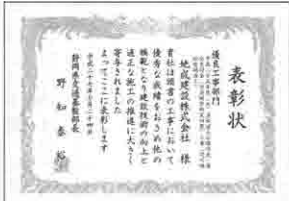 表彰状
優良工事部門
地成建設株式会社 様
貴社は頭書の工事において
優秀な成績をおさめ他の
模範となり建設技術の向上と
適正な施工の推進に大きく
寄与されました
よってここに表彰します
平成二十七年七月二十四日
静岡県交通基盤部長
野知泰裕